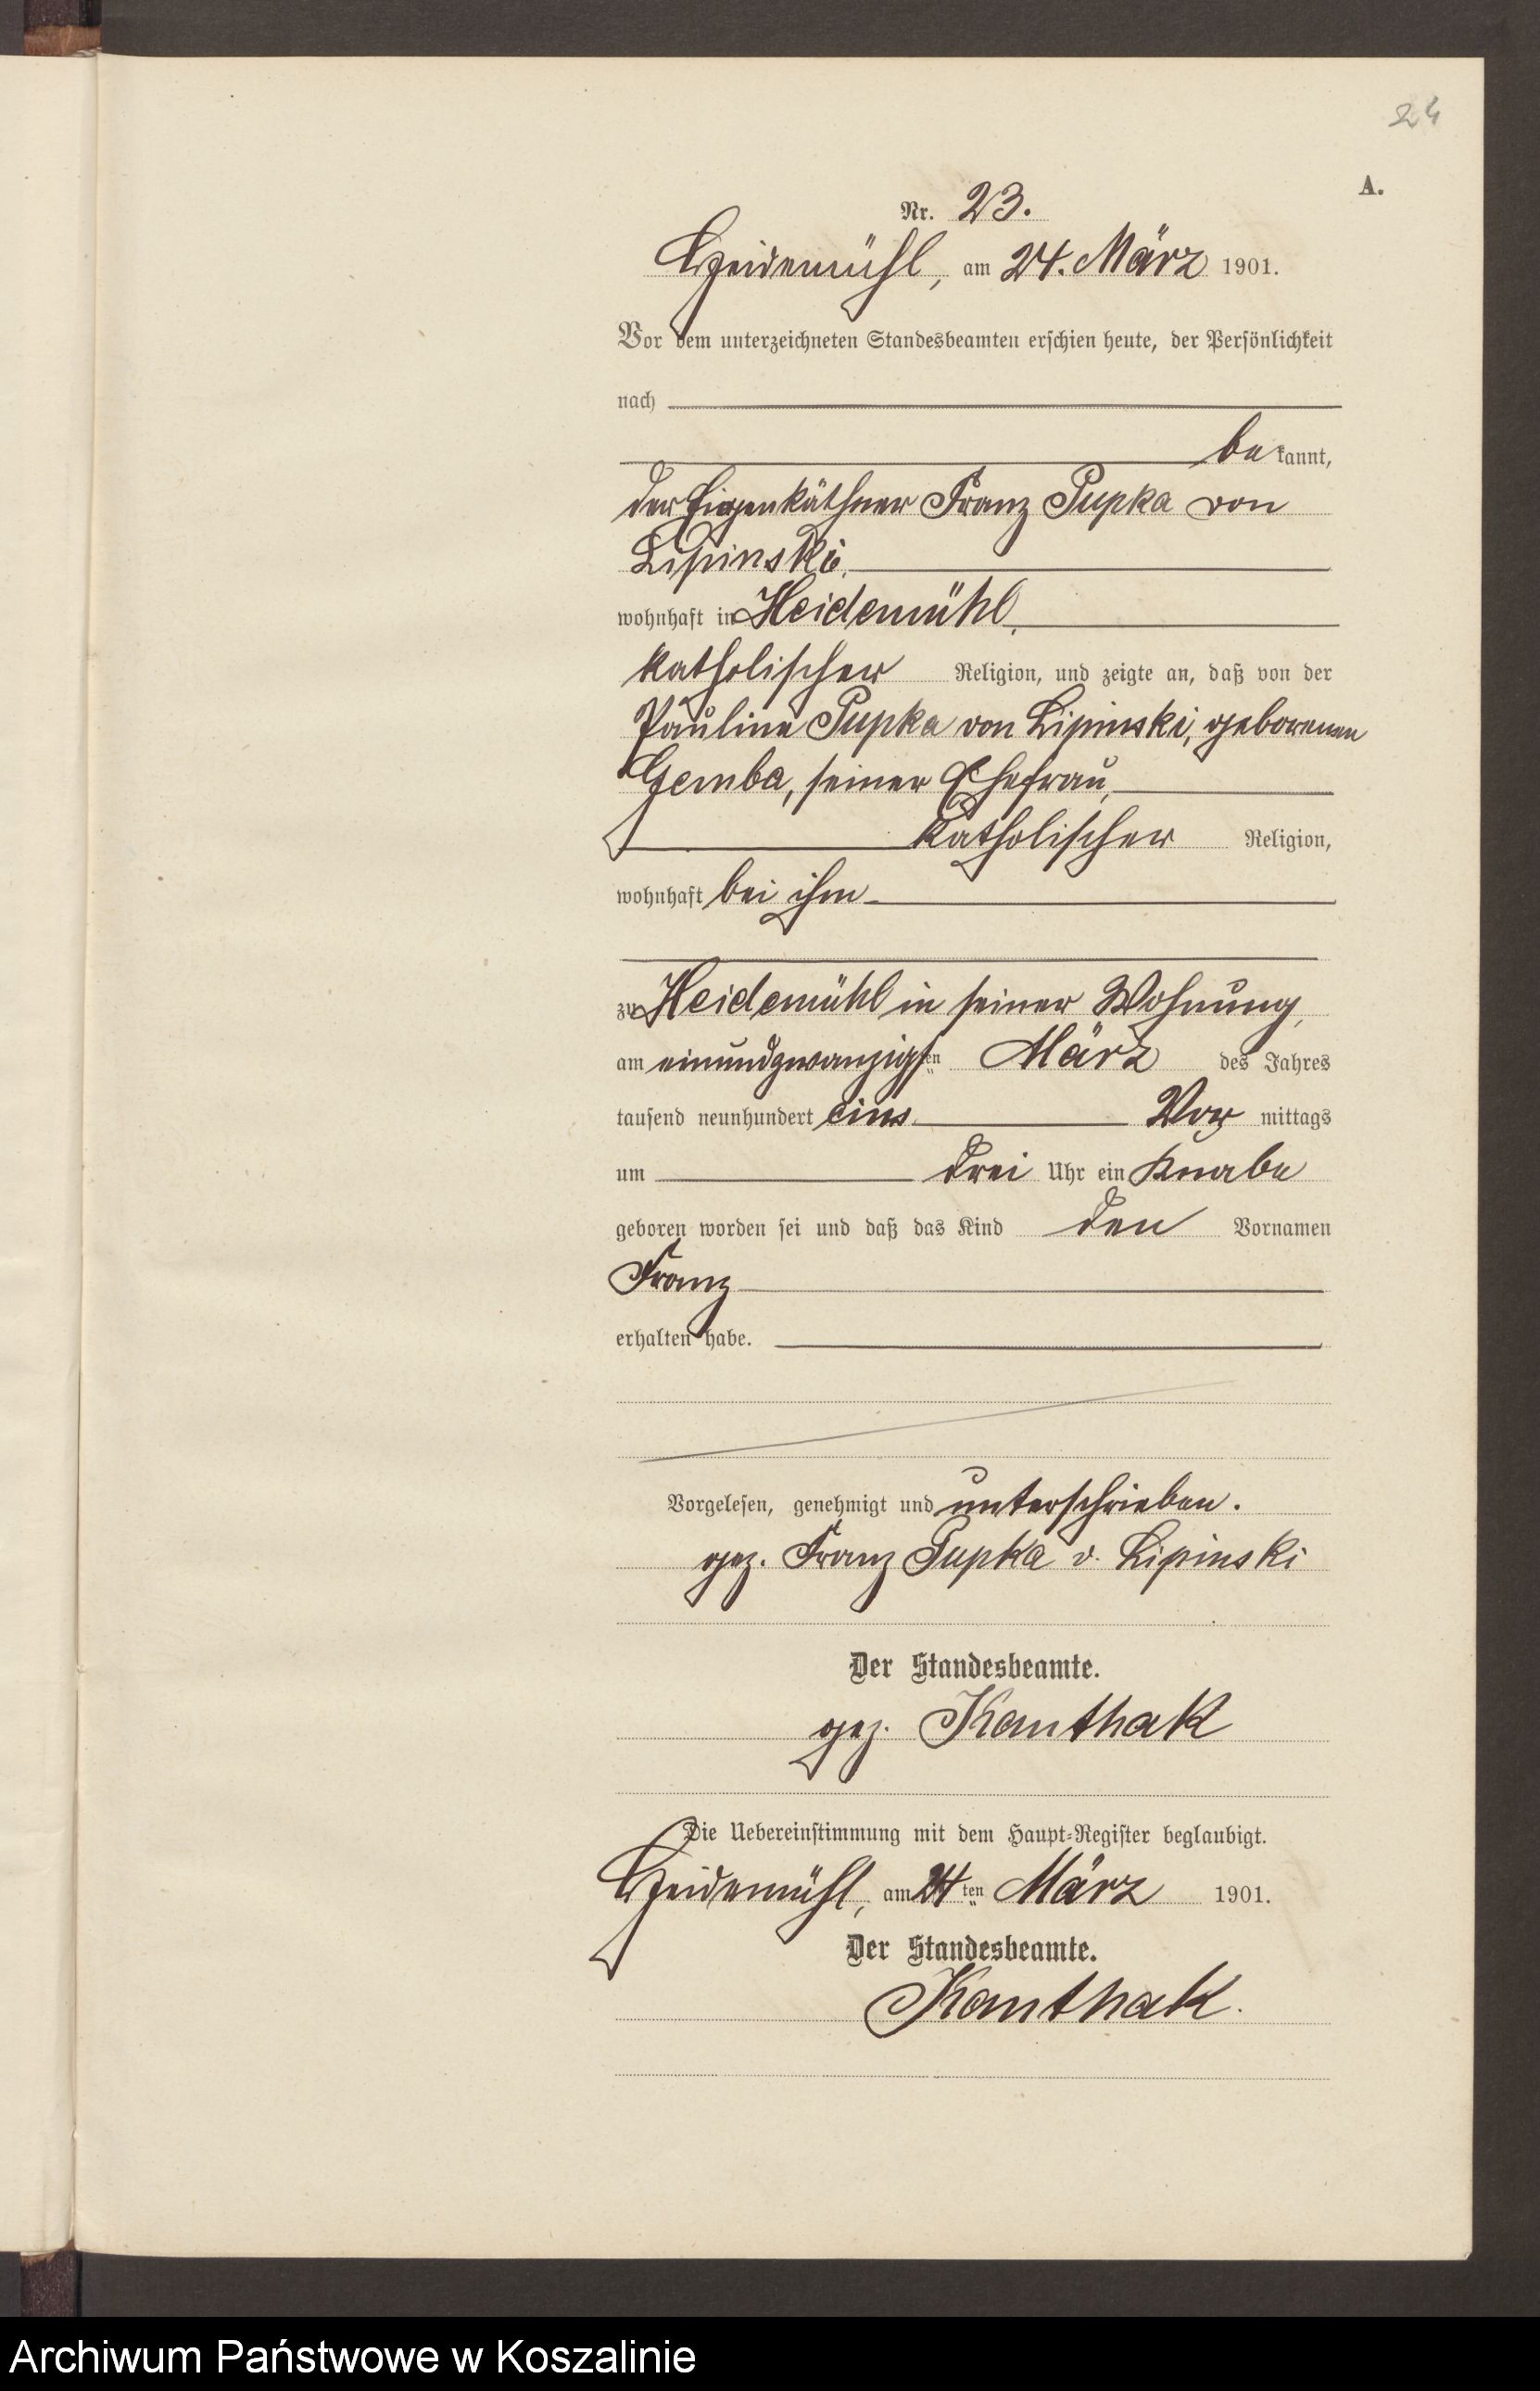 24
A.
Nr. 23.
Heidemühl, am 24. März 1901.
Vor dem unterzeichneten Standesbeamten erschien heute, der Persönlichkeit
nach
bekannt,
der Eigenkäthner Franz Pupka von
Lipinski,
wohnhaft in Heidemühl,
katholischer Religion, und zeigte an, daß von der
Pauline Pupka von Lipinski, geborenen
Gemba, seiner Ehefrau,
katholischer Religion,
wohnhaft bei ihm
zu Heidemühl in seiner Wohnung,
am einundzwanzigsten März des Jahres
tausend neunhundert eins Vor mittags
um drei Uhr ein Knabe
geboren worden sei und daß das Kind den Vornamen
Franz
erhalten habe.
Vorgelesen, genehmigt und unterschrieben.
gez. Franz Pupka v. Lipinski
Der Standesbeamte.
gez. Kanthak
Die Uebereinstimmung mit dem Haupt-Register beglaubigt.
Heidemühl, am 24ten März 1901.
Der Standesbeamte.
Kanthak.
Archiwum Państwowe w Koszalinie